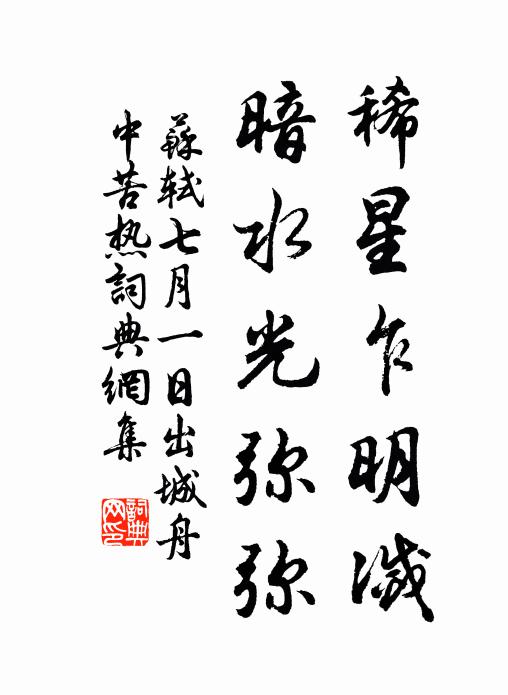 稀星乍明滅
暗水光弥弥
蘇轼七月一日出城舟
中苦热詞典網集
詞典
网印